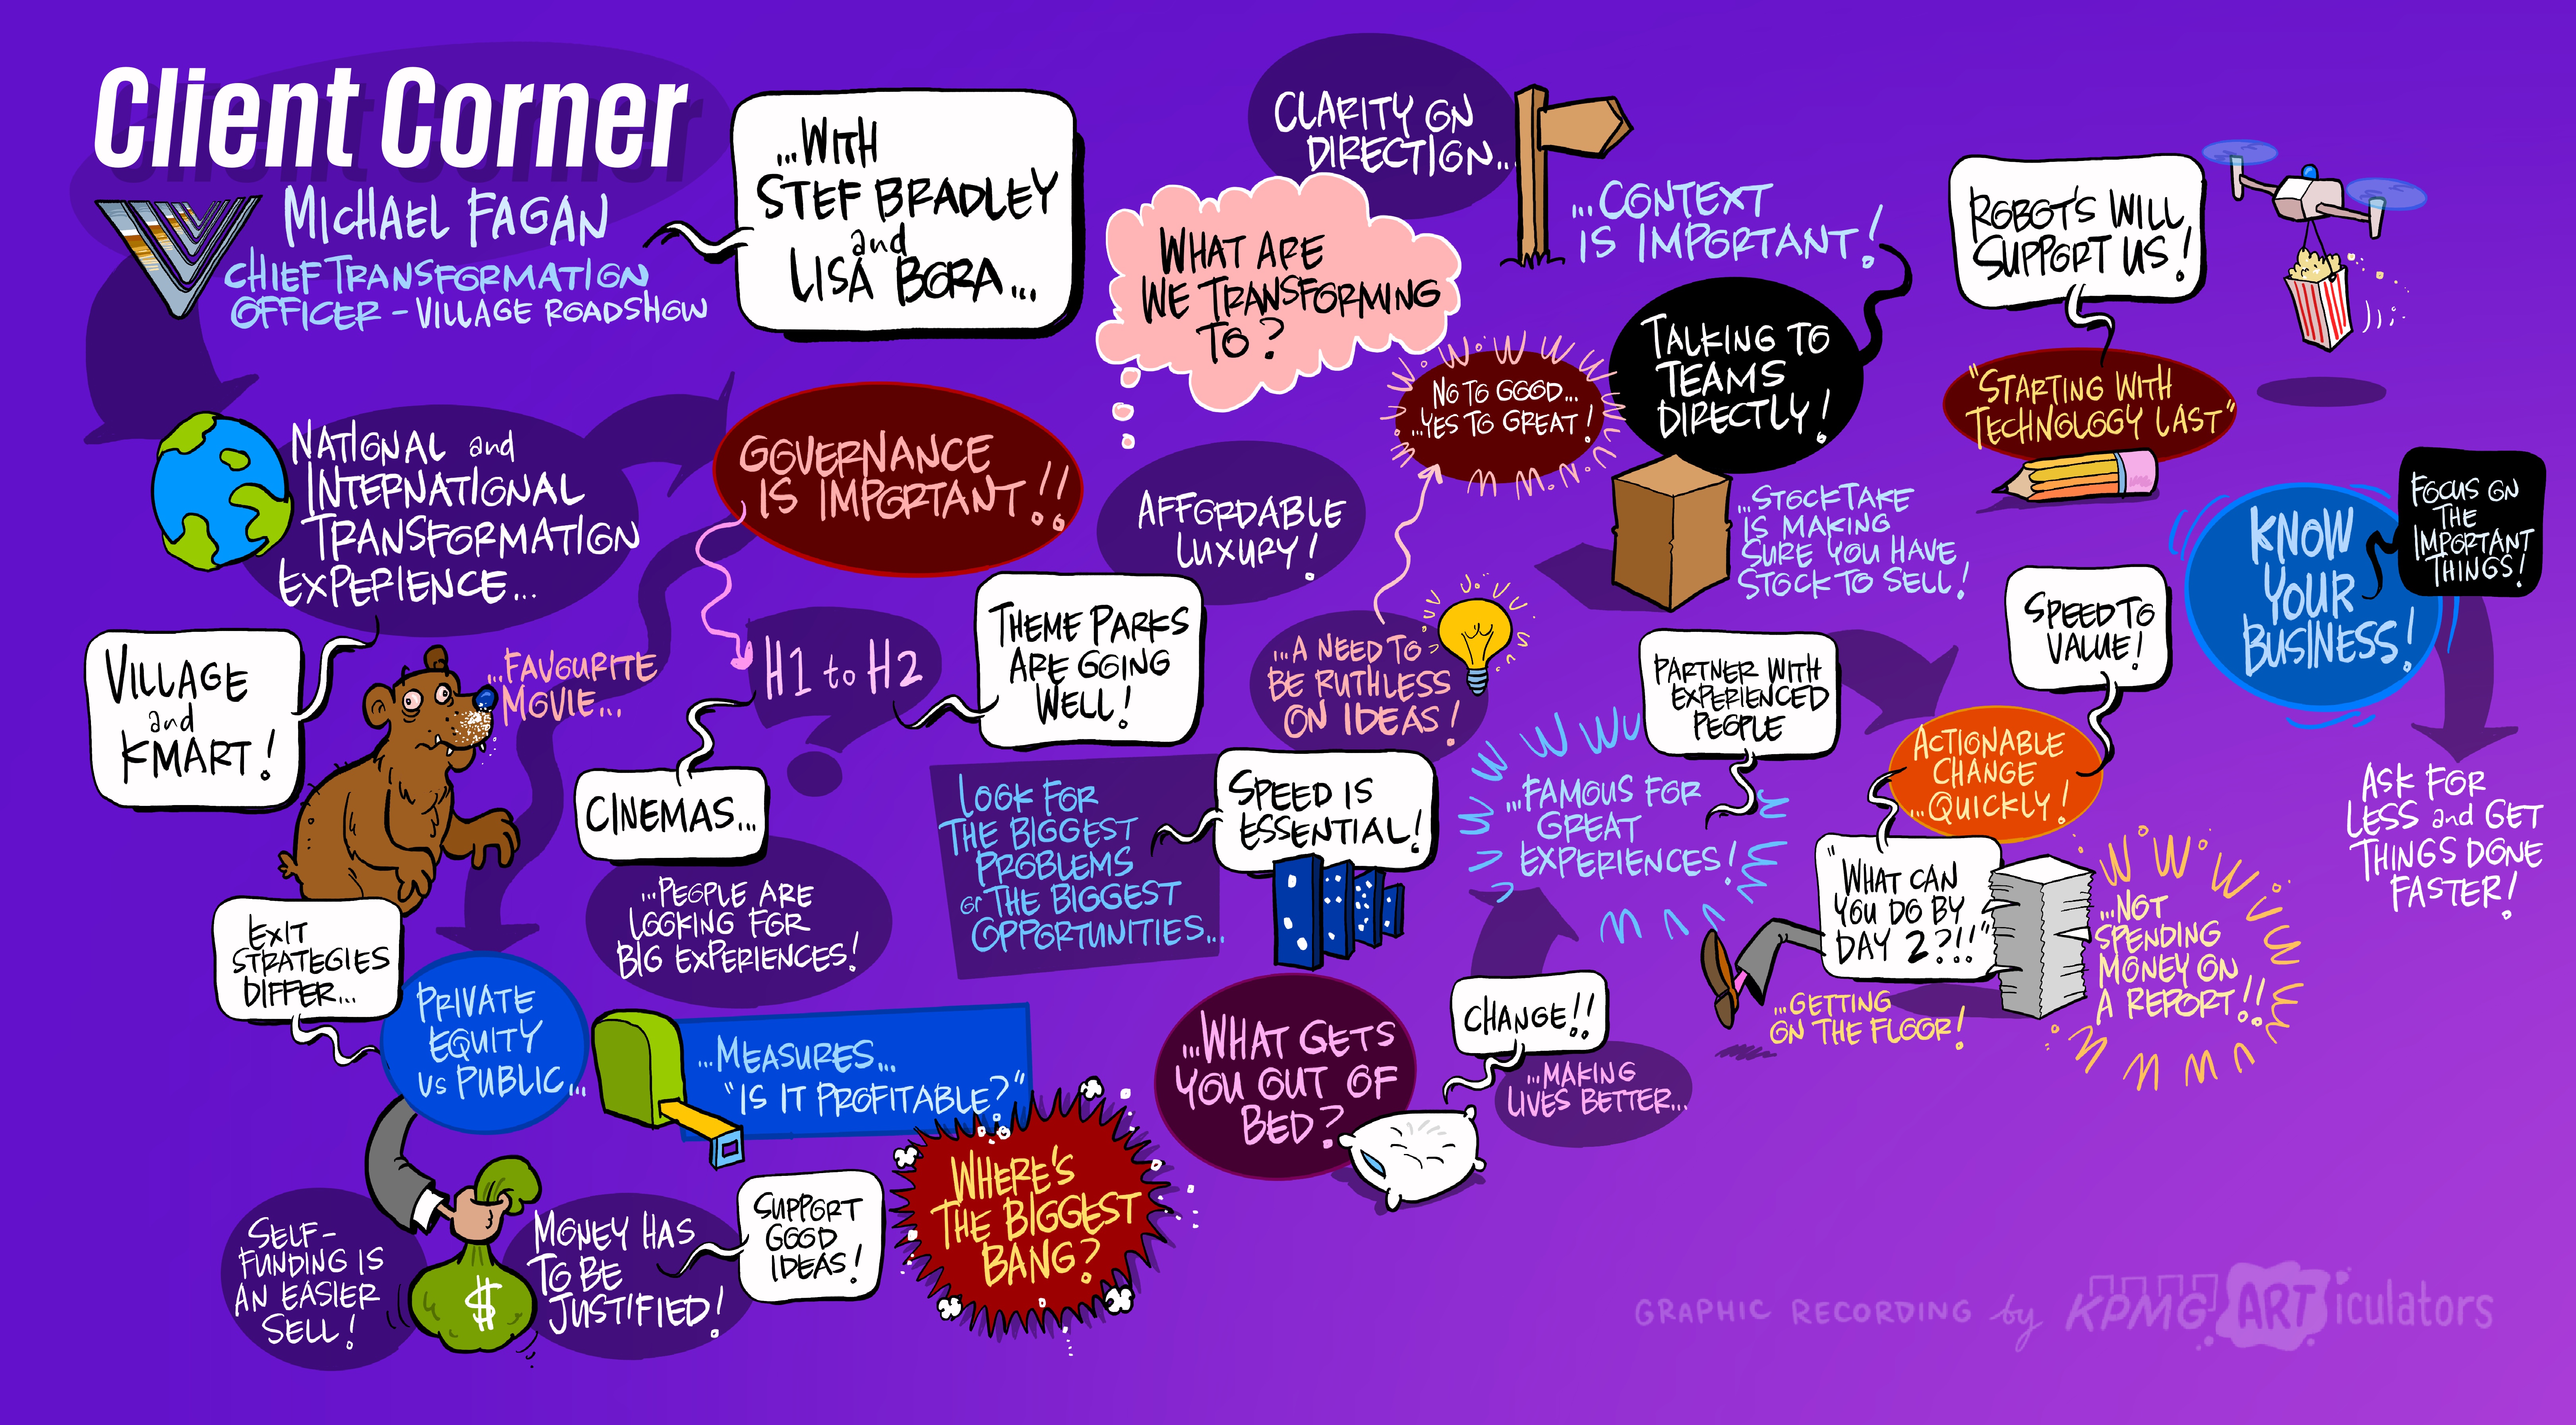 Client Corner
MICHAEL FAGAN
CHIEF TRANSFORMATION
OFFICER – VILLAGE ROADSHOW
...WITH
STEF BRADLEY
and
LISA BORA...
NATIONAL and
INTERNATIONAL
TRANSFORMATION
EXPERIENCE...
VILLAGE
and
KMART!
...FAVOURITE
MOVIE...
GOVERNANCE
IS IMPORTANT!!
H1 to H2
THEME PARKS
ARE GOING
WELL!
CINEMAS...
...PEOPLE ARE
LOOKING FOR
BIG EXPERIENCES!
EXIT
STRATEGIES
DIFFER...
PRIVATE
EQUITY
vs PUBLIC...
SELF-
FUNDING IS
AN EASIER
SELL!
$
MONEY HAS
TO BE
JUSTIFIED!
SUPPORT
GOOD
IDEAS!
...MEASURES...
"IS IT PROFITABLE?"
WHERE'S
THE BIGGEST
BANG?
CLARITY ON
DIRECTION...
WHAT ARE
WE TRANSFORMING
TO?
...CONTEXT
IS IMPORTANT!
TALKING TO
TEAMS
DIRECTLY!
NO TO GOOD...
...YES TO GREAT!
AFFORDABLE
LUXURY!
...A NEED TO
BE RUTHLESS
ON IDEAS!
LOOK FOR
THE BIGGEST
PROBLEMS
or THE BIGGEST
OPPORTUNITIES...
SPEED IS
ESSENTIAL!
...WHAT GETS
YOU OUT OF
BED?
CHANGE!!
...MAKING
LIVES BETTER...
...FAMOUS FOR
GREAT
EXPERIENCES!
PARTNER WITH
EXPERIENCED
PEOPLE
...STOCKTAKE
IS MAKING
SURE YOU HAVE
STOCK TO SELL!
ROBOT'S WILL
SUPPORT US!
"STARTING WITH
TECHNOLOGY LAST"
SPEED TO
VALUE!
ACTIONABLE
CHANGE
...QUICKLY!
"WHAT CAN
YOU DO BY
DAY 2?!!"
...GETTING
ON THE FLOOR!
...NOT
SPENDING
MONEY ON
A REPORT!!
KNOW
YOUR
BUSINESS!
FOCUS ON
THE
IMPORTANT
THINGS!
ASK FOR
LESS and GET
THINGS DONE
FASTER!
GRAPHIC RECORDING by KPMG ARTiculators